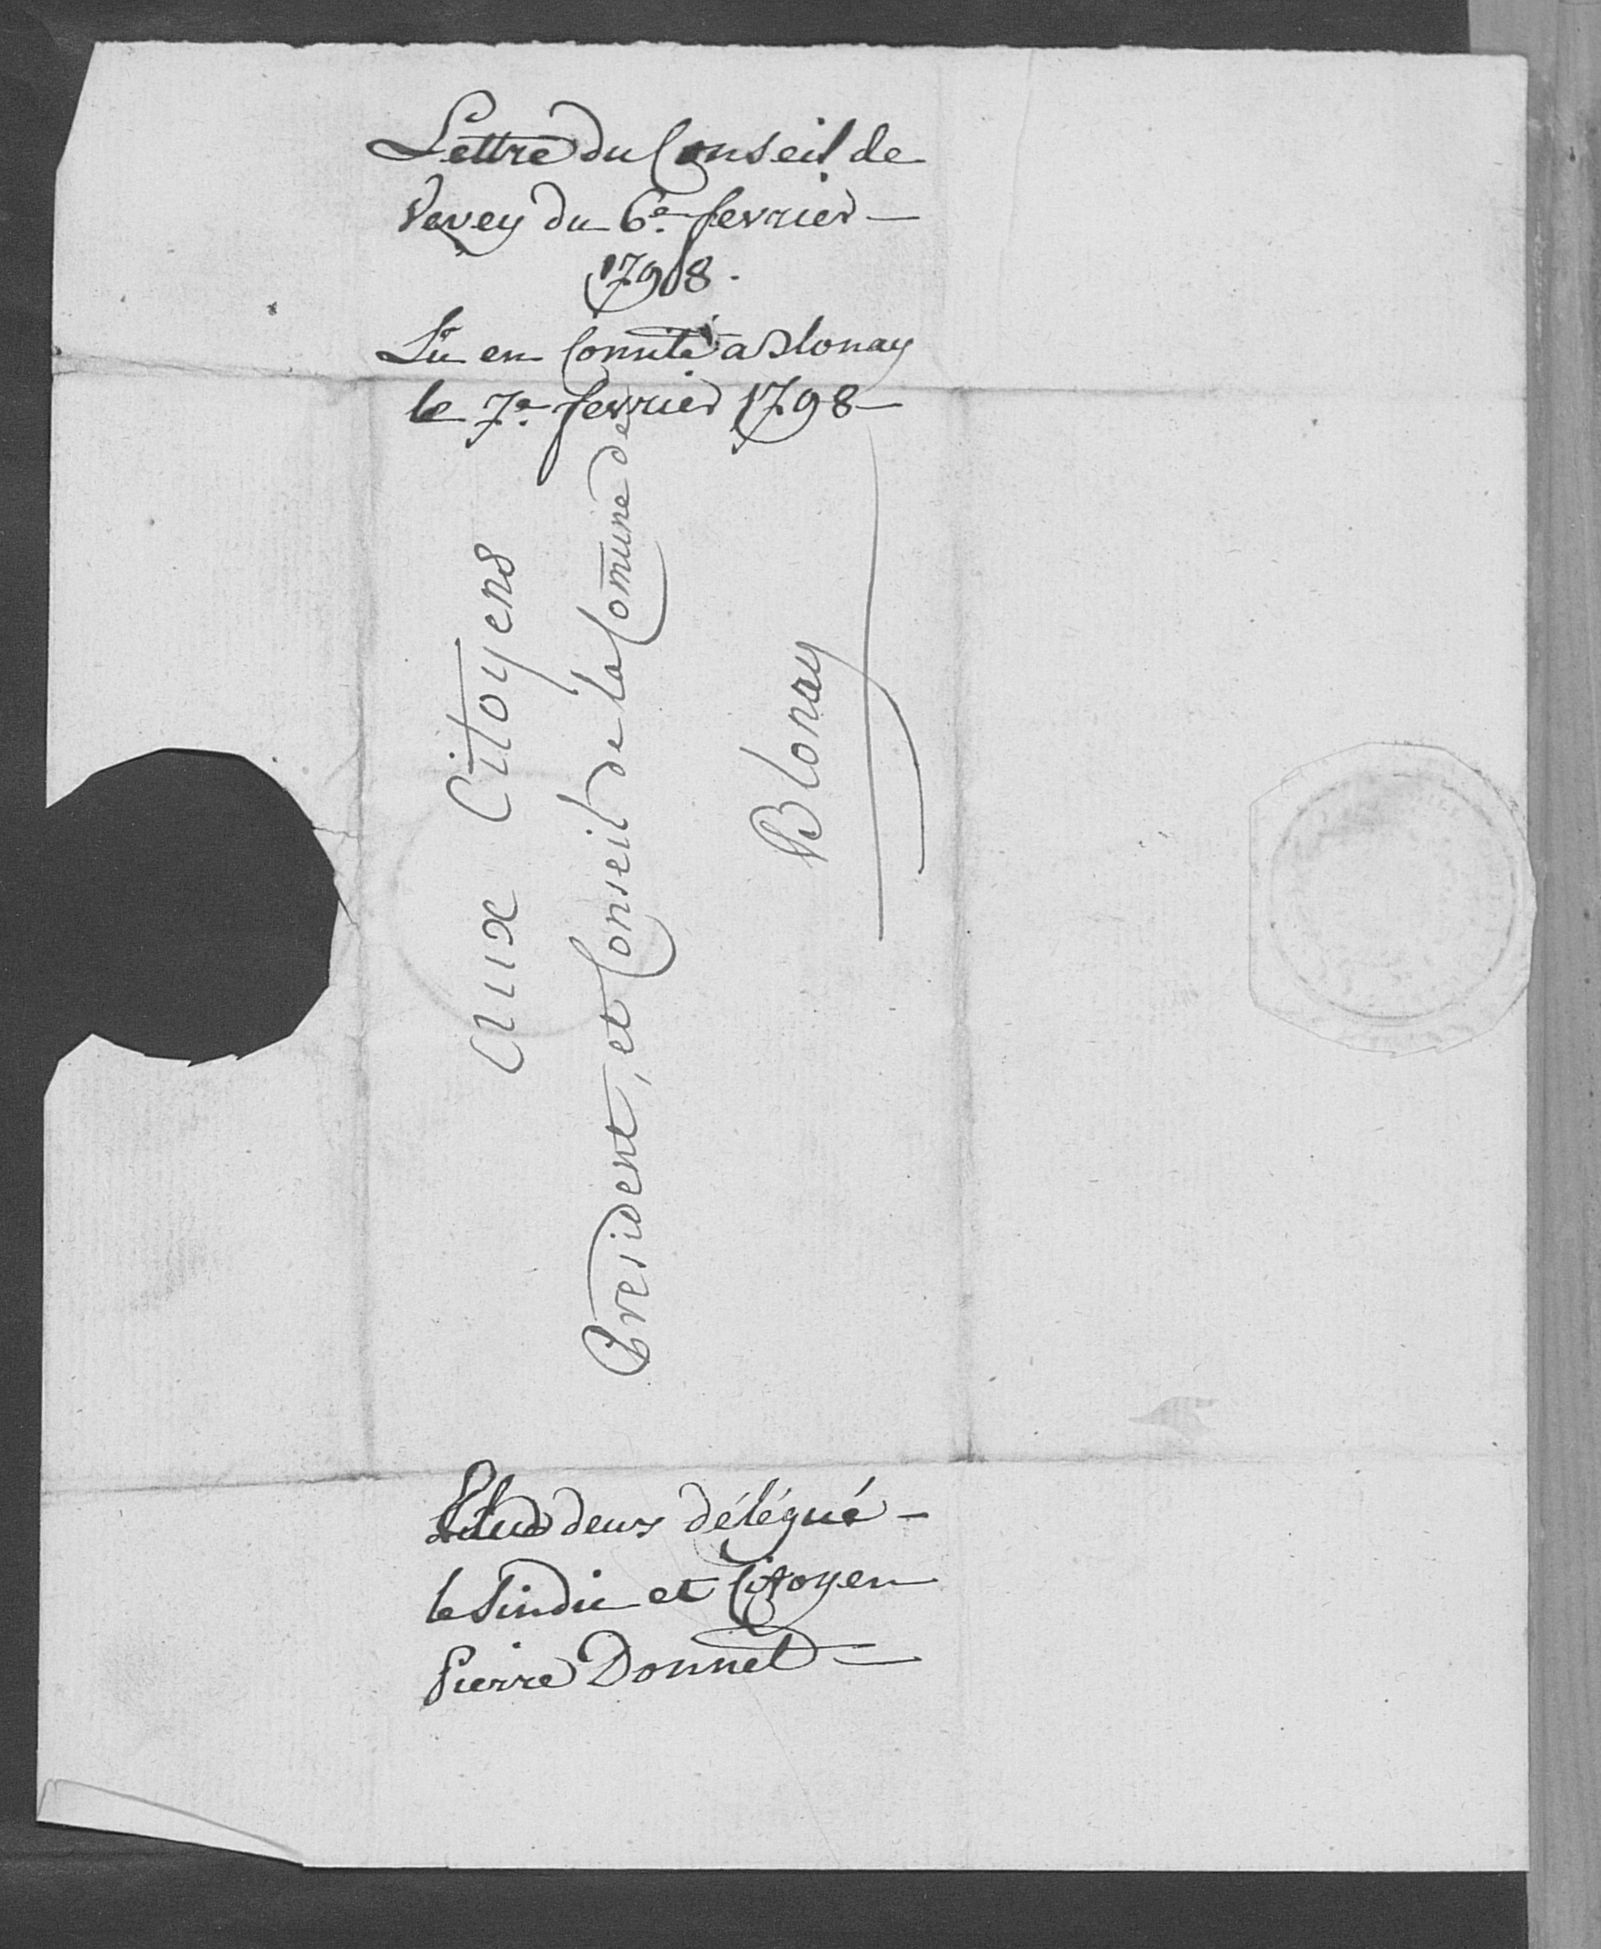 Lettre du Conseil de
Vevey du 6e. fevrier
1798.
Lû en Comité a Blonay
le 7e. fevrier 1798
Aux Citoyens
President, et Conseil de la Comune de
Blonay
Elus deux délégué
le Sindic et Citoyen
Pierre Donnet